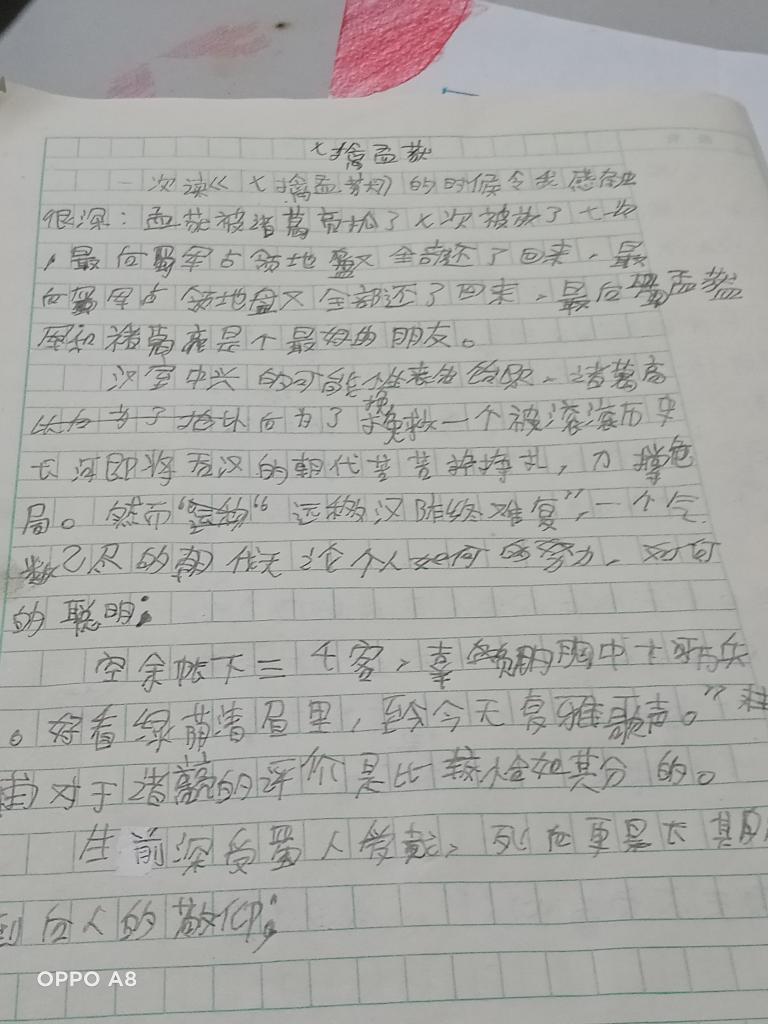 七擒孟获
一次读《七擒孟获》的时候令我感
很深：孟获被诸葛亮抓了七次被放了七次
，最后蜀军占领地盘又全部还了回来，最
后蜀军占领地盘又全部还了回来，最后孟获
和诸葛亮是个最好的朋友。
汉室中兴的可能性，诸葛亮
为了挽救一个被滚滚历史
长河即将吞没的朝代苦苦挣扎，力撑危
局。然而“运移汉祚终难复”，一个气
数已尽的朝代无论个人如何的努力，如何
的聪明；
空余帐下三千客，胸中十
。好看绿荫清眉里，至今天复雅歌声。”杜
甫对于诸葛的评价是比较恰如其分的。
生前深受蜀人爱戴，死后更是
到后人的敬仰；
OPPO A8